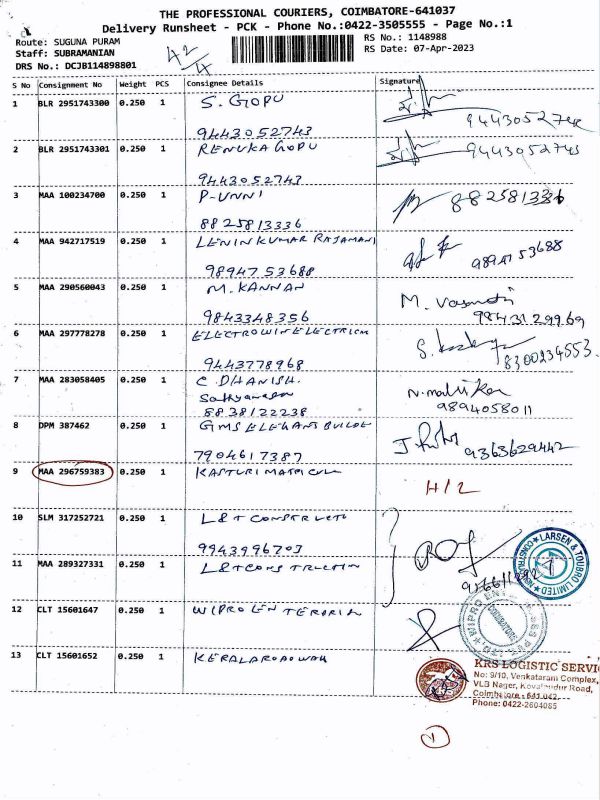 THE PROFESSIONAL COURIERS, COIMBATORE-641037
Delivery Runsheet - PCK - Phone No.:0422-3505555 - Page No.:1
Route: SUGUNA PURAM
Staff: SUBRAMANIAN
DRS No.: DCJB114898801
42/4
RS No.: 1148988
RS Date: 07-Apr-2023
S No Consignment No Weight PCS Consignee Details Signature
1 BLR 2951743300 0.250 1 S. GOPU
9443052743 944305274
2 BLR 2951743301 0.250 1 RENUKA GOPU
9443052743 9443052743
3 MAA 100234700 0.250 1 P-UNNI
8825813336 882581336
4 MAA 942717519 0.250 1 LENINKUMAR RAJAMANI
9894753688 9894753688
5 MAA 290560043 0.250 1 M. KANNAN
9843348356 9843129969
6 MAA 297778278 0.250 1 ELECTROWIN ELECTRICM
9443778968 8300234553.
7 MAA 283058405 0.250 1 C DHANISH.
8838122238 9894058011
8 DPM 387462 0.250 1 GMS ELEGANT BUILDE
7904617387 9363629442
9 MAA 296759383 0.250 1 KASTURI MATRICUL H/2
10 SLM 317252721 0.250 1 L&T CONSTRUCTI
9943996703
11 MAA 289327331 0.250 1 L&T CONSTRUCTION
LARSEN & TOUBRO LIMITED
12 CLT 15601647 0.250 1 WIPRO ENTERPRIS
COIMBATORE
13 CLT 15601652 0.250 1 KERALAROADWAY
KRS LOGISTIC SERVIC
No: 9/10, Venkataram Complex,
VLB Nager, Kovaipudur Road,
Coimbatore - 641 042.
Phone: 0422-2604085
1